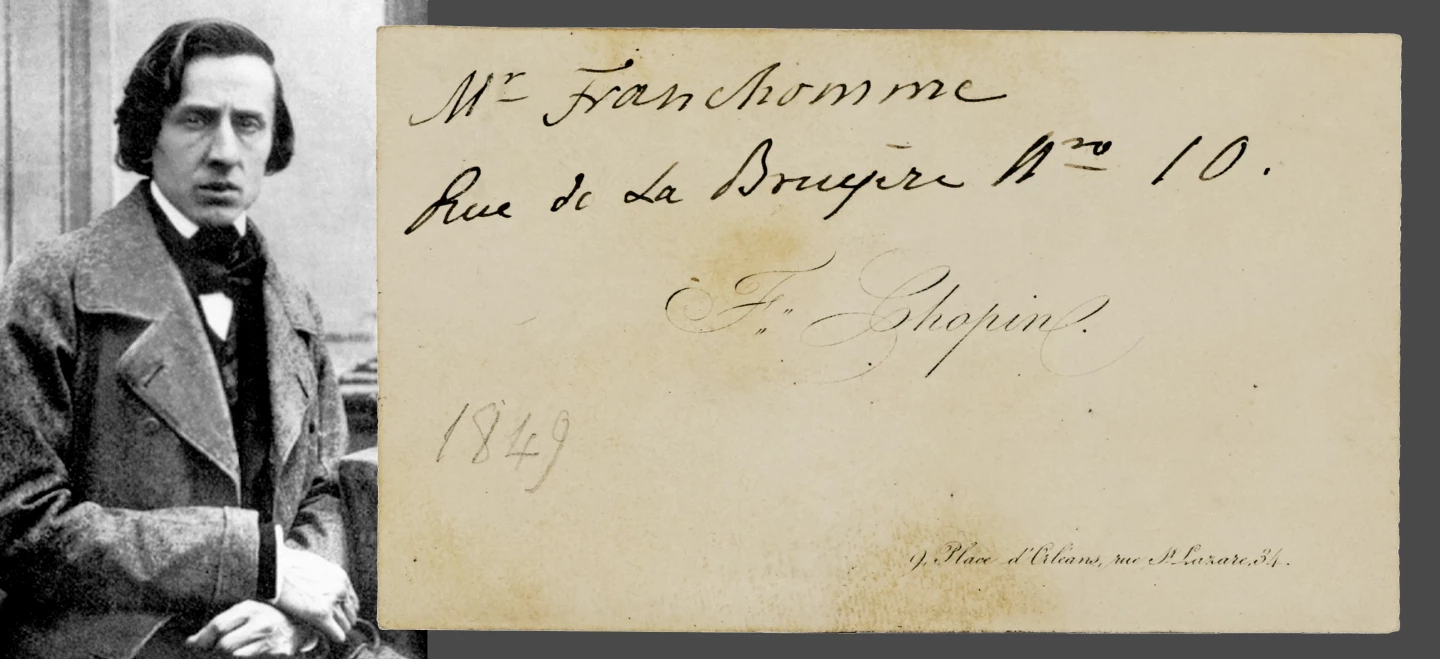 Mr Franchomme
Rue de La Bruyère Nro 10.
F. Chopin.
1849
9, Place d'Orléans, rue St. Lazare, 34.